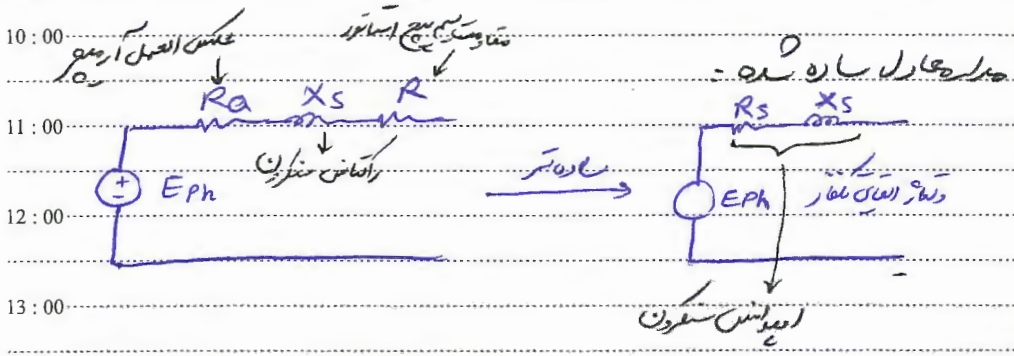 10:00
عکس العمل آرمیچر
مقاومت سیم پیچ استاتور
مدار معادل ساده شده -
Ra Xs R
Rs Xs
11:00
راکتانس سنکرون
ساده تر
+
-
EPh
EPh
ولتاژ القای تکفاز
12:00
13:00
امپدانس سنکرون